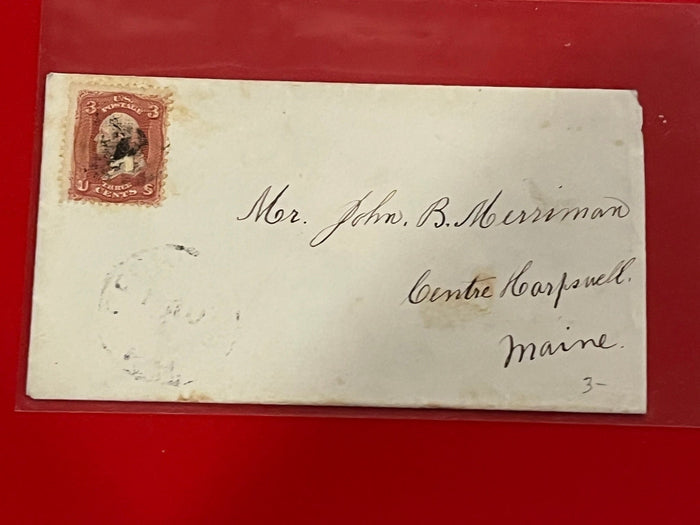 3 U.S. 3
POSTAGE
THREE
U CENTS S
Mr. John. B. Merriman
Centre Harpswell.
Maine.
3-